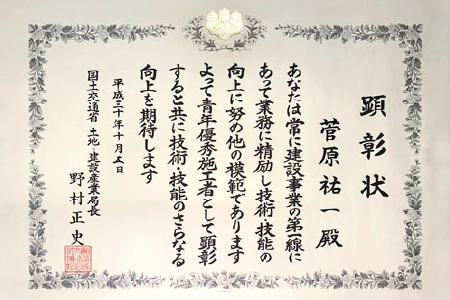 顕彰状
菅原祐一殿
あなたは常に建設事業の第一線に
あって業務に精励し技術・技能の
向上に努め他の模範であります
よって青年優秀施工者として顕彰
すると共に技術・技能のさらなる
向上を期待します
平成三十年十月五日
国土交通省 土地・建設産業局長
野村正史